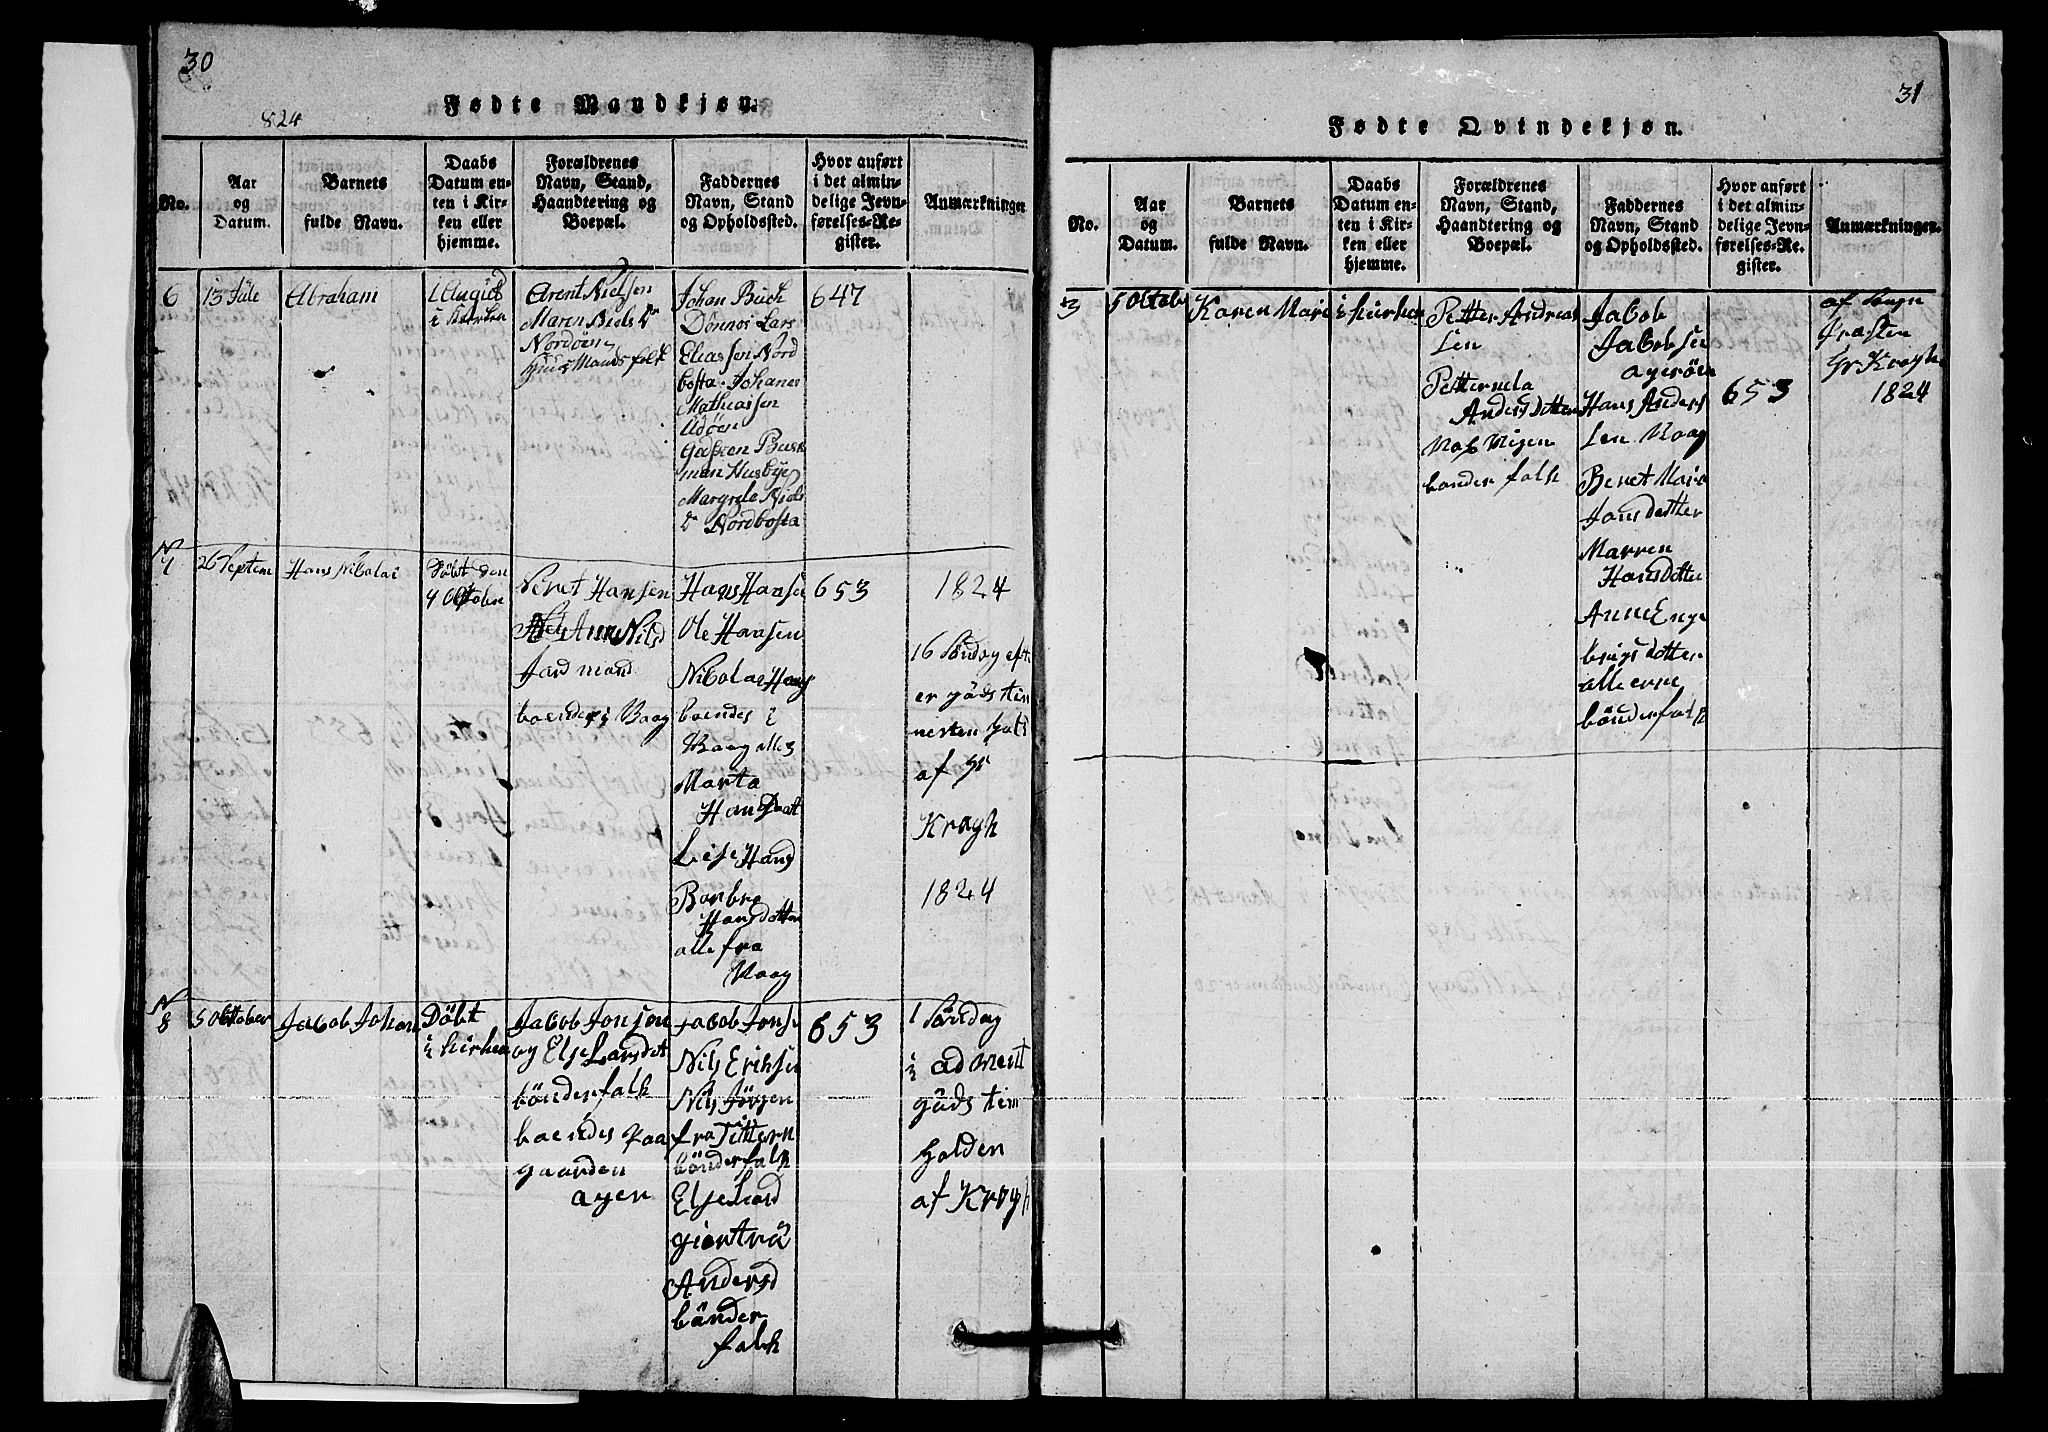 30
824
Fødte Mandkjøn.
No.
Aar
og
Datum.
Barnets
fulde Navn.
Daabs
Datum en-
ten i Kir-
ken eller
hjemme.
Forældrenes
Navn, Stand,
Haandtering og
Boepæl.
Faddernes
Navn, Stand
og Opholdssted.
Hvor anført
i det almin-
delige Jevn-
førelses-Re-
gister.
Anmærkninger
6
13 Jule
Abraham
1 August
i Kirken
Arent Nielsen
Maren Niels Dr
Nordøen
Huus Mands folk
Johan Buch
Dønnes Lars
Eliassen Nord
bosta Johanes
Mathiassen
Udøen
Busk
man Husbye
Margrete Niels
Dr Nordbosta
647
N
7
26 Septem
Hans Nikolai
Døbt den
4 Oktober
Hansen
Anne Nils
Jordmand
boendes i Vaag
Hans Hanse
Ole Hansen
Nikolai Hans
boendes i
Vaag alles
Marta
Hansdaat
Lise Hans
Barbra
Hansdotter
alle fra
Vaag
653
1824
16 Søndag eft
er
nesten
af Hr
Kragh
1824
N
8
5 Oktober
Jakob Johan
Døbt
i kirken
Jakob Jonsen
og Else Larsdot
bönderfalk
boendes paa
gaarden
ager
Jakob Jonse
Nils Eriksen
Nils Jörgen
fra Titttern
bönderfalk
Else Lard
giertrü
Andersd
bönder
falk
653
1 Söndag
i adment
güds tien
holden
af Kragh
31
Fødte Qvindekjøn.
No.
Aar
og
Datum.
Barnets
fulde Navn.
Daabs
Datum en-
ten i Kir-
ken eller
hjemme.
Forældrenes
Navn, Stand,
Haandtering og
Boepæl.
Faddernes
Navn, Stand
og Opholdssted.
Hvor anført
i det almin-
delige Jevn-
førelses-Re-
gister.
Anmærkninger.
3
5 Oktob
Karen Mari
i kirken
Petter Andreas
sen
Petternela
Andersdotter
bonder falk
Jakob
Jakobsen
agerøen
Hans Anders
sen Vaag
Beret Mari
Jonsdotter
Marren
Hansdotter
Anne Enge
brigsdotter
alle erne
bönderfalk
653
af Sogn
Præsten
Hr Kragh
1824